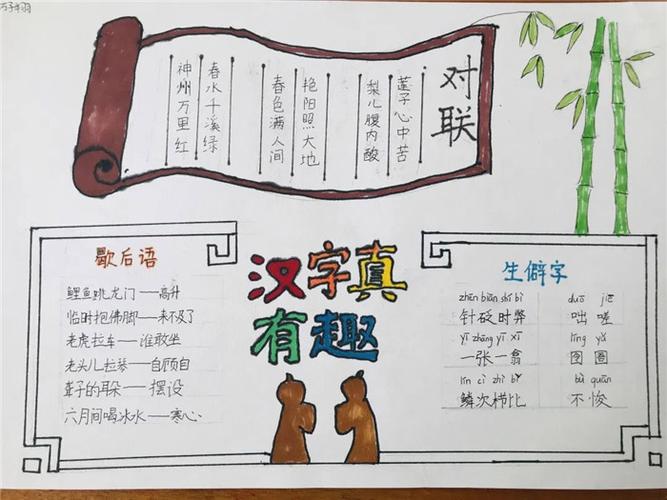 对联
莲子心中苦
梨儿腹内酸
艳阳照大地
春色满人间
春水千溪绿
神州万里红
歇后语
鲤鱼跳龙门——高升
临时抱佛脚——来不及了
老虎拉车——谁敢坐
老头儿拉琴——自顾自
聋子的耳朵——摆设
六月间喝冰水——寒心
汉字真
有趣
生僻字
zhēn biān shí bì duō jiē
针砭时弊 咄嗟
yī zhāng yī xī líng yǔ
一张一翕 囹圄
lín cì zhì bǐ bù quān
鳞次栉比 不悛